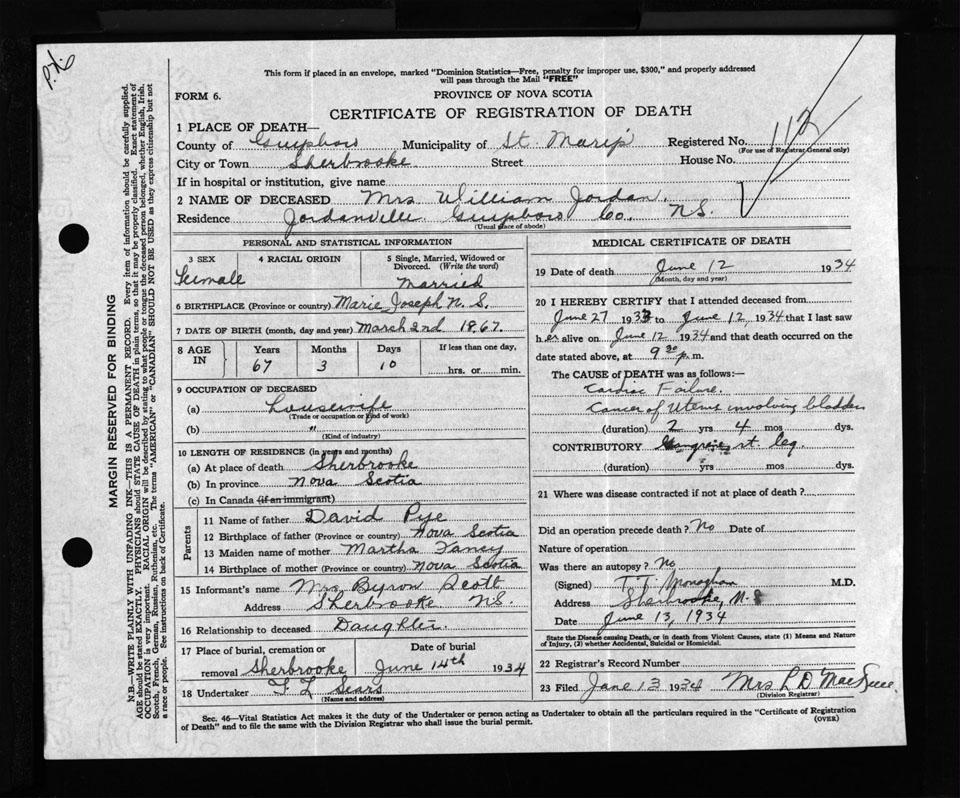 P.X.
This form if placed in an envelope, marked "Dominion Statistics—Free, penalty for improper use, $300," and properly addressed
will pass through the Mail "FREE"
FORM 6.
PROVINCE OF NOVA SCOTIA
CERTIFICATE OF REGISTRATION OF DEATH
1 PLACE OF DEATH—
County of Guysboro Municipality of St. Mary's Registered No. 112
(For use of Registrar General only)
City or Town Sherbrooke Street House No.
If in hospital or institution, give name
2 NAME OF DECEASED Mrs. William Jordan.
Residence Jordanville Guysboro Co. N.S.
(Usual place of abode)
MARGIN RESERVED FOR BINDING
N.B.—WRITE PLAINLY WITH UNFADING INK—THIS IS A PERMANENT RECORD. Every item of information should be carefully supplied.
AGE should be stated EXACTLY. PHYSICIANS should STATE CAUSE OF DEATH in plain terms, so that it may be properly classified. Exact statement of
OCCUPATION is very important. RACIAL ORIGIN will be described by stating to what people or tongue the deceased person belonged, whether English, Irish,
Scotch, French, German, Russian, Ruthenian, etc. The terms "AMERICAN" or "CANADIAN" SHOULD NOT BE USED as they express citizenship but not
a race or people. See instructions on back of Certificate.
PERSONAL AND STATISTICAL INFORMATION
3 SEX 4 RACIAL ORIGIN 5 Single, Married, Widowed or
Divorced. (Write the word)
Female Married
6 BIRTHPLACE (Province or country) Marie Joseph N.S.
7 DATE OF BIRTH (month, day and year) March 2nd 1867.
8 AGE IN Years Months Days If less than one day,
67 3 10 hrs. or min.
9 OCCUPATION OF DECEASED
(a) housewife
(Trade or occupation or kind of work)
(b) "
(Kind of industry)
10 LENGTH OF RESIDENCE (in years and months)
(a) At place of death Sherbrooke
(b) In province Nova Scotia
(c) In Canada (if an immigrant)
Parents
11 Name of father David Pye
12 Birthplace of father (Province or country) Nova Scotia
13 Maiden name of mother Martha Fancy
14 Birthplace of mother (Province or country) Nova Scotia
15 Informant's name Mrs Byron Scott
Address Sherbrooke NS.
16 Relationship to deceased Daughter
17 Place of burial, cremation or Date of burial
removal Sherbrooke June 14th 1934
18 Undertaker F L Sears
(Name and address)
MEDICAL CERTIFICATE OF DEATH
19 Date of death June 12 1934
(Month, day and year)
20 I HEREBY CERTIFY that I attended deceased from
June 27 1933 to June 12, 1934 that I last saw
her alive on June 12 1934 and that death occurred on the
date stated above, at 9 30 p.m.
The CAUSE of DEATH was as follows:—
Cardiac Failure.
Cancer of Uterus involving bladder
(duration) 2 yrs 4 mos dys.
CONTRIBUTORY Gangrene st. leg.
(duration) yrs mos dys.
21 Where was disease contracted if not at place of death?
Did an operation precede death? No Date of
Nature of operation
Was there an autopsy? No
(Signed) T.T. Monaghan M.D.
Address Sherbrooke, N.S
Date June 13, 1934
State the Disease causing Death, or in death from Violent Causes, state (1) Means and Nature
of Injury, (2) whether Accidental, Suicidal or Homicidal.
22 Registrar's Record Number
23 Filed June 13 1934 Mrs L D
(Division Registrar)
Sec. 46—Vital Statistics Act makes it the duty of the Undertaker or person acting as Undertaker to obtain all the particulars required in the "Certificate of Registration
of Death" and to file the same with the Division Registrar who shall issue the burial permit. (OVER)